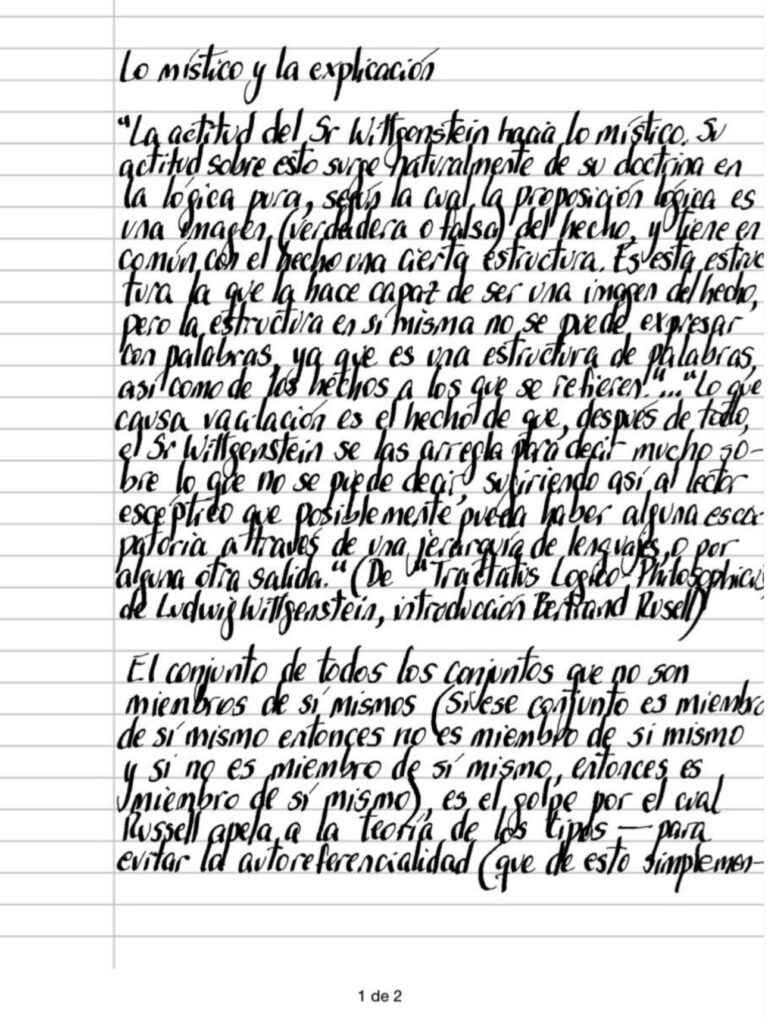 Lo místico y la explicación
"La actitud del Sr Wittgenstein hacia lo místico. Su
actitud sobre esto surge naturalmente de su doctrina en
la lógica pura, según la cual la proposición lógica es
una imagen (verdadera o falsa) del hecho, y tiene en
común con el hecho una cierta estructura. Es esta estruc
tura la que la hace capaz de ser una imagen del hecho,
pero la estructura en sí misma no se puede expresar
con palabras, ya que es una estructura de palabras,
así como de los hechos a los que se refieren"..."Lo que
causa vacilación es el hecho de que, después de todo,
el Sr Wittgenstein se las arregla para decir mucho so-
bre lo que no se puede decir, sugiriendo así al lector
escéptico que posiblemente pueda haber alguna esca
patoria a través de una jerarquía de lenguajes, o por
alguna otra salida." (De "Tractatus Logico-Philosophicus
de Ludwig Wittgenstein, introducción Bertrand Rusell)
El conjunto de todos los conjuntos que no son
miembros de sí mismos (Si ese conjunto es miembro
de sí mismo entonces no es miembro de si mismo
y si no es miembro de sí mismo, entonces es
miembro de sí mismo), es el golpe por el cual
Russell apela a la teoría de los tipos — para
evitar la autoreferencialidad (que de esto simplemen-
1 de 2